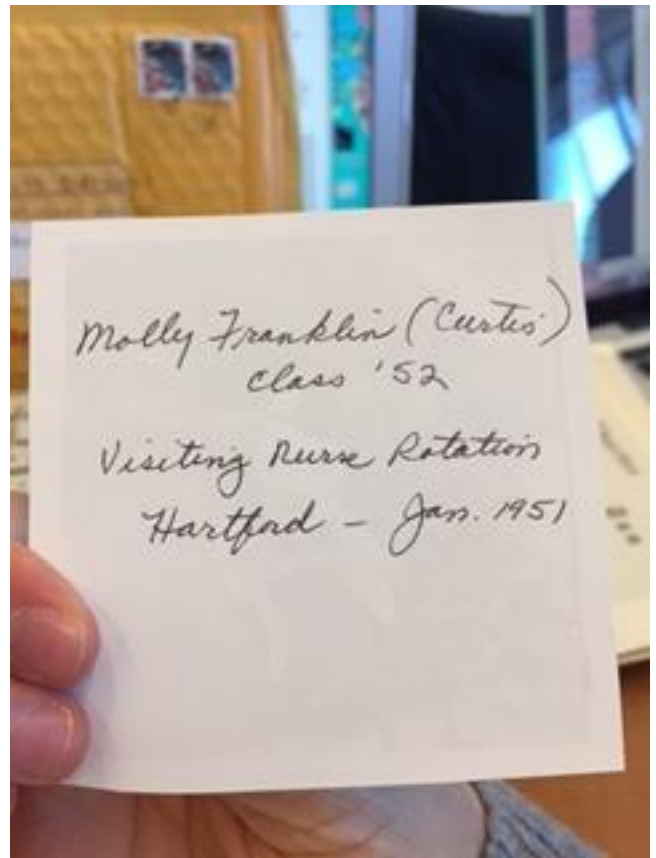 Molly Franklin (Curtis)
Class '52
Visiting Nurse Rotation
Hartford - Jan. 1951